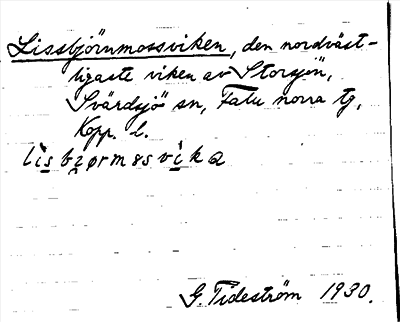 Lissbjörnmossviken, den nordväst-
ligaste viken av Storsjön,
Svärdsjö sn, Falu norra tg,
Kopp. l.
lisbzørmsvika
G. Tideström 1930.